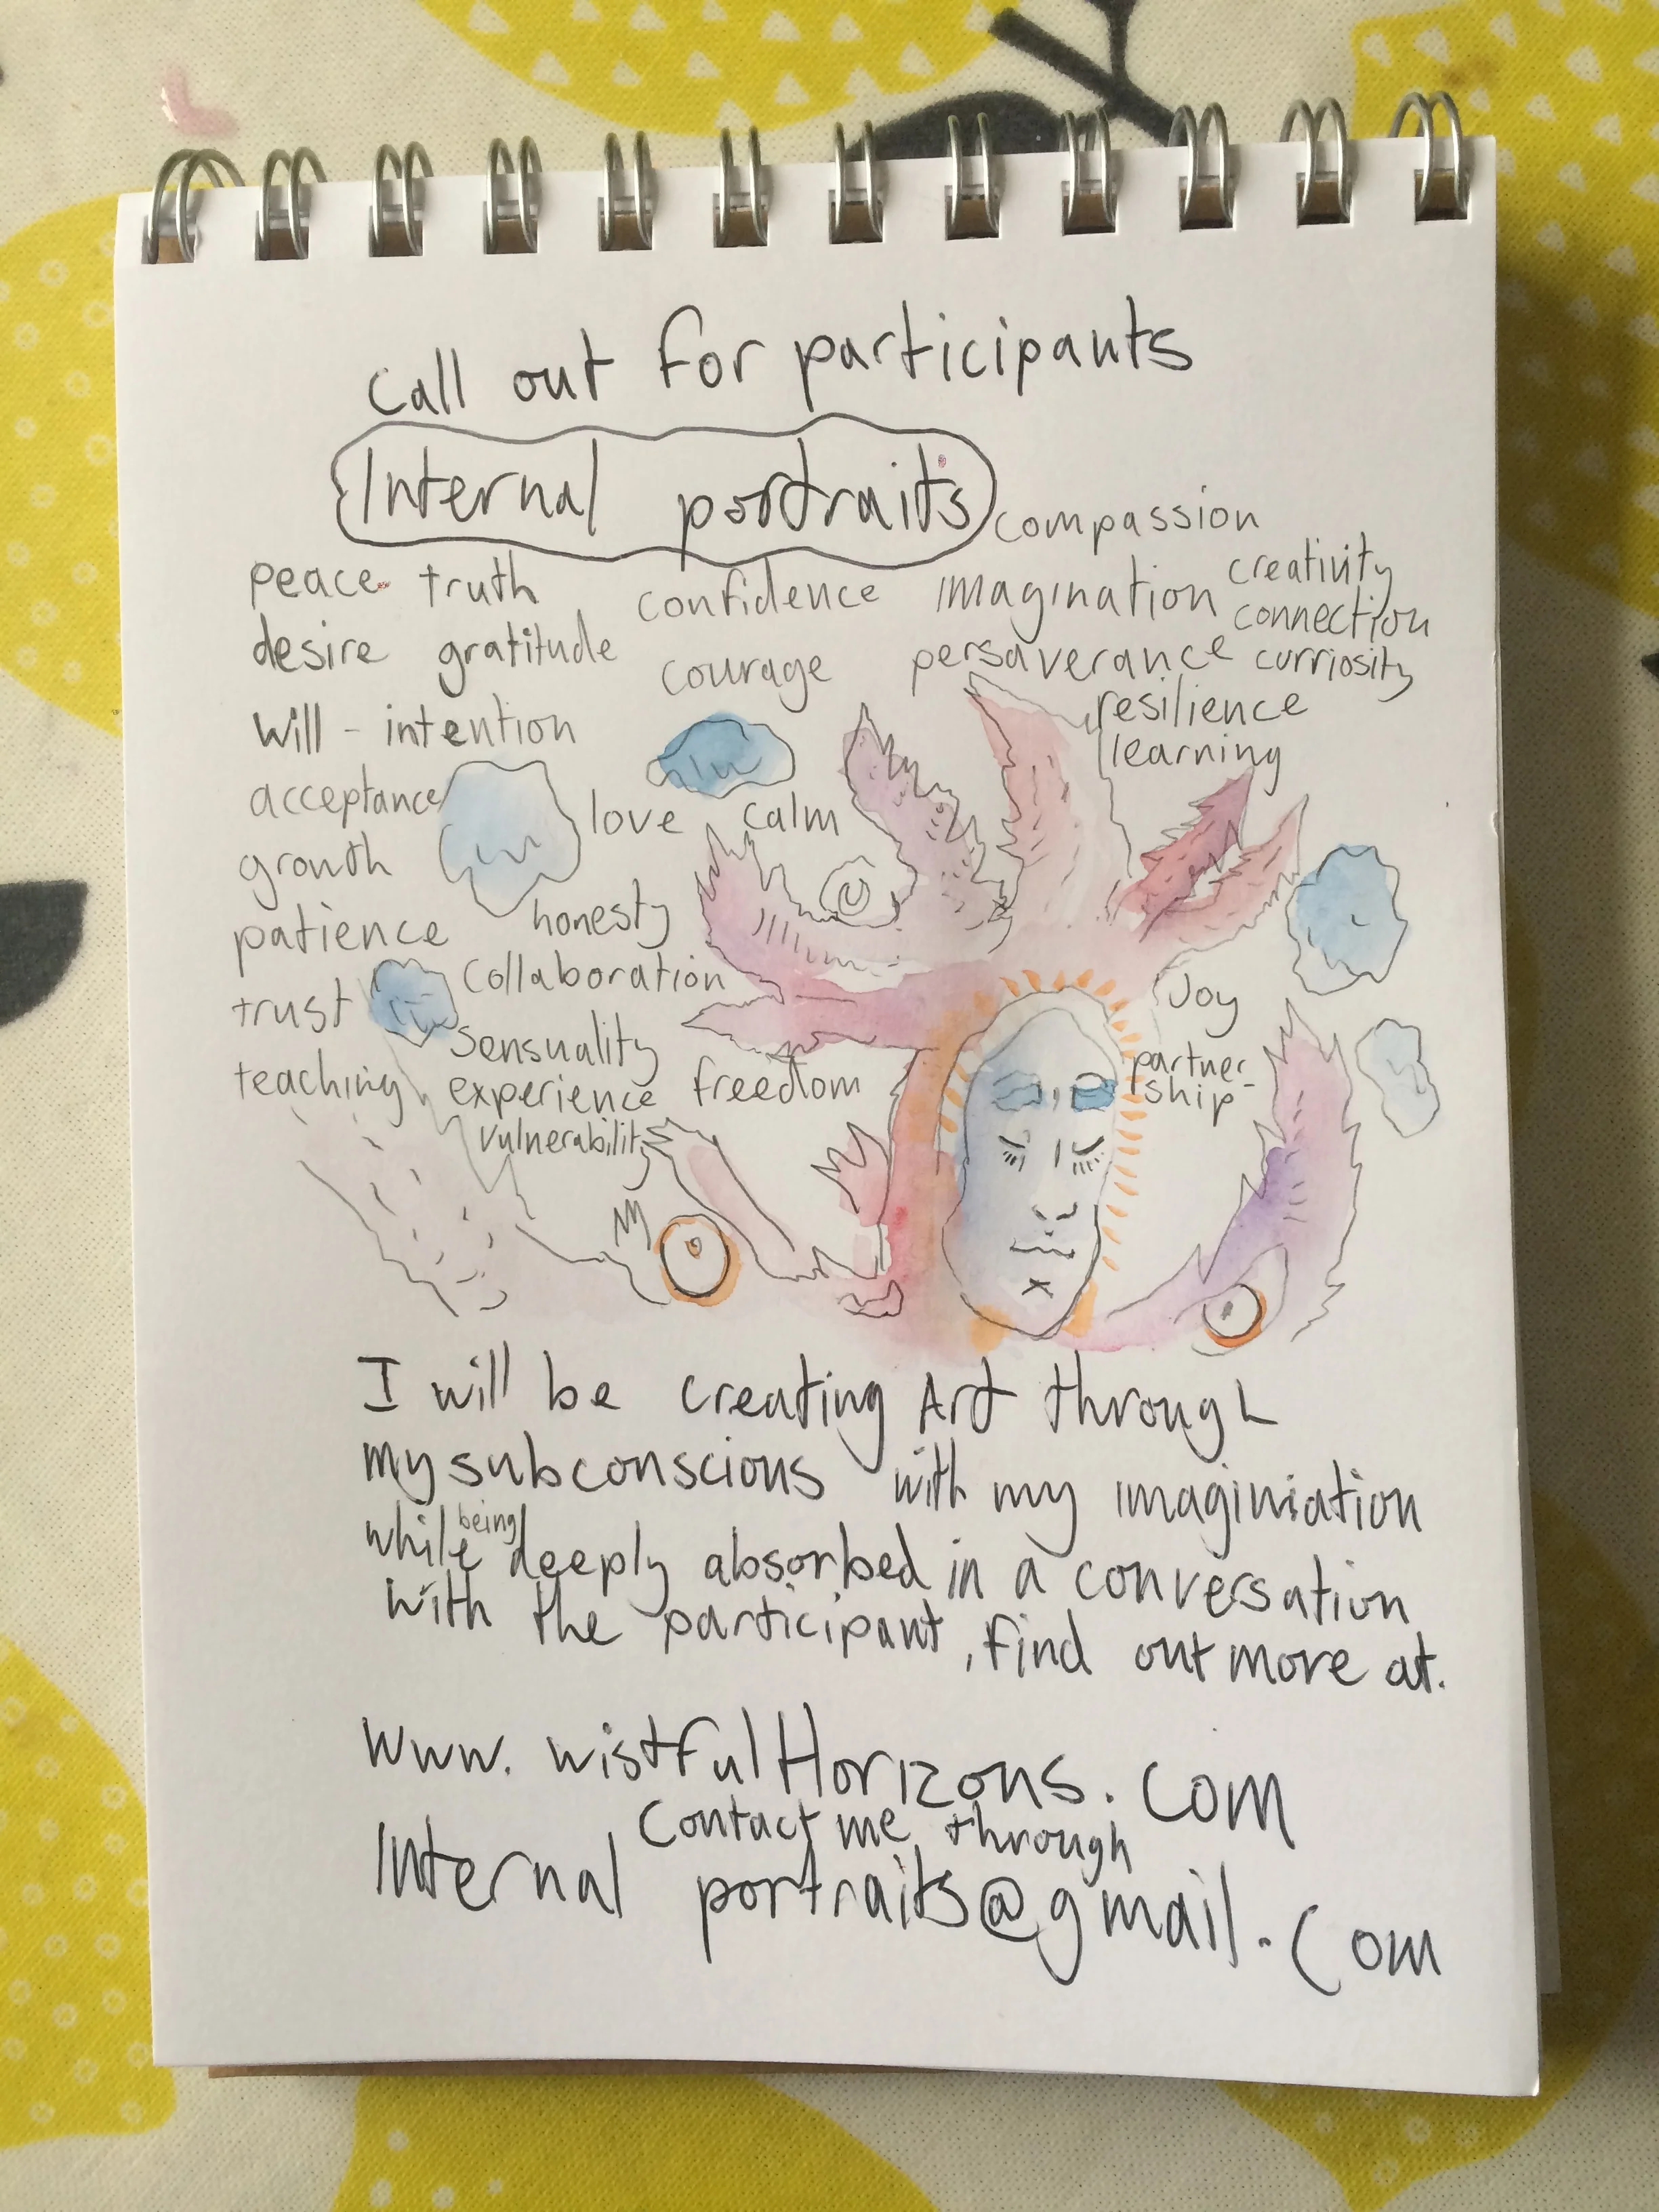 Call out for participants
Internal portraits
compassion
peace truth confidence imagination creativity
connection
desire gratitude courage persaverance curriosity
will - intention resilience
learning
acceptance love calm
growth
patience honesty
collaboration
trust Joy
sensuality
teaching experience freedom partner-
ship
vulnerability
I will be creating Art through
my subconscious with my imaginiation
while being deeply absorbed in a conversation
with the participant, find out more at.
www.wistfulHorizons.com
Contact me through
Internal portraits@gmail.com